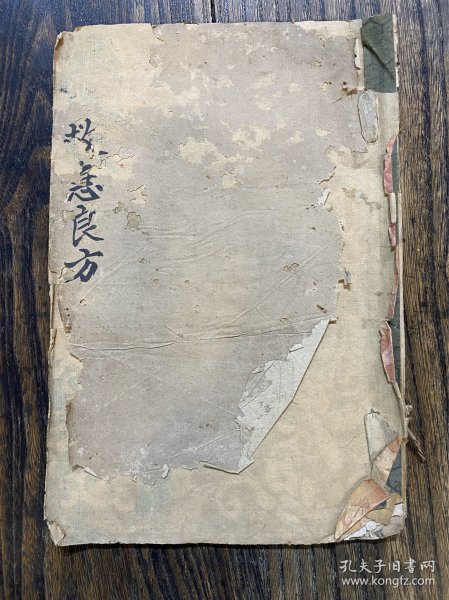 救急良方
孔夫子旧书网
www.kongfz.com